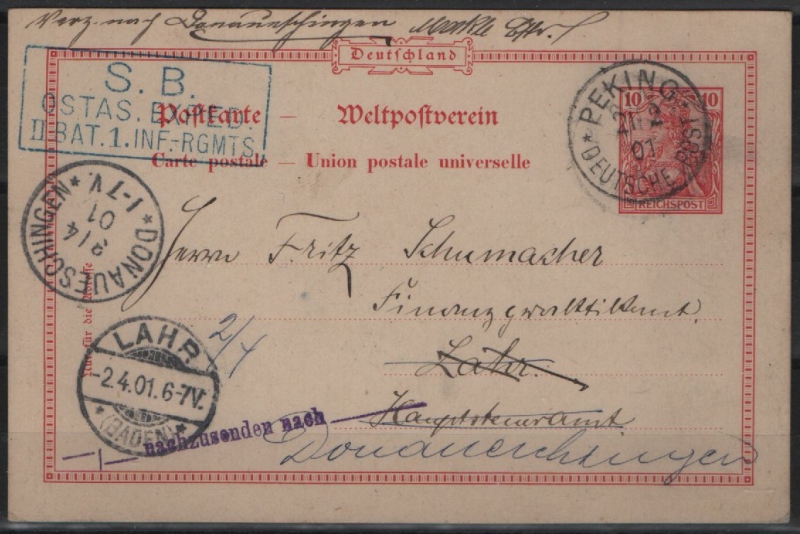 Verz. nach Donaueschingen Merkle
Deutschland
S. B.
OSTAS. EXPED.
II BAT. 1. INF.-RGMTS.
Postkarte — Weltpostverein
Carte postale — Union postale universelle
10 10
REICHSPOST
PEKING
01
DEUTSCHE POST
DONAUESCHINGEN
3/4
01
1-7V.
Nur für die Adresse
Herrn Fritz Schumacher
Finanz
2/4
Lahr.
LAHR
-2.4.01.6-7V.
(BADEN)
Hauptsteueramt.
nachzusenden nach
Donaueschingen